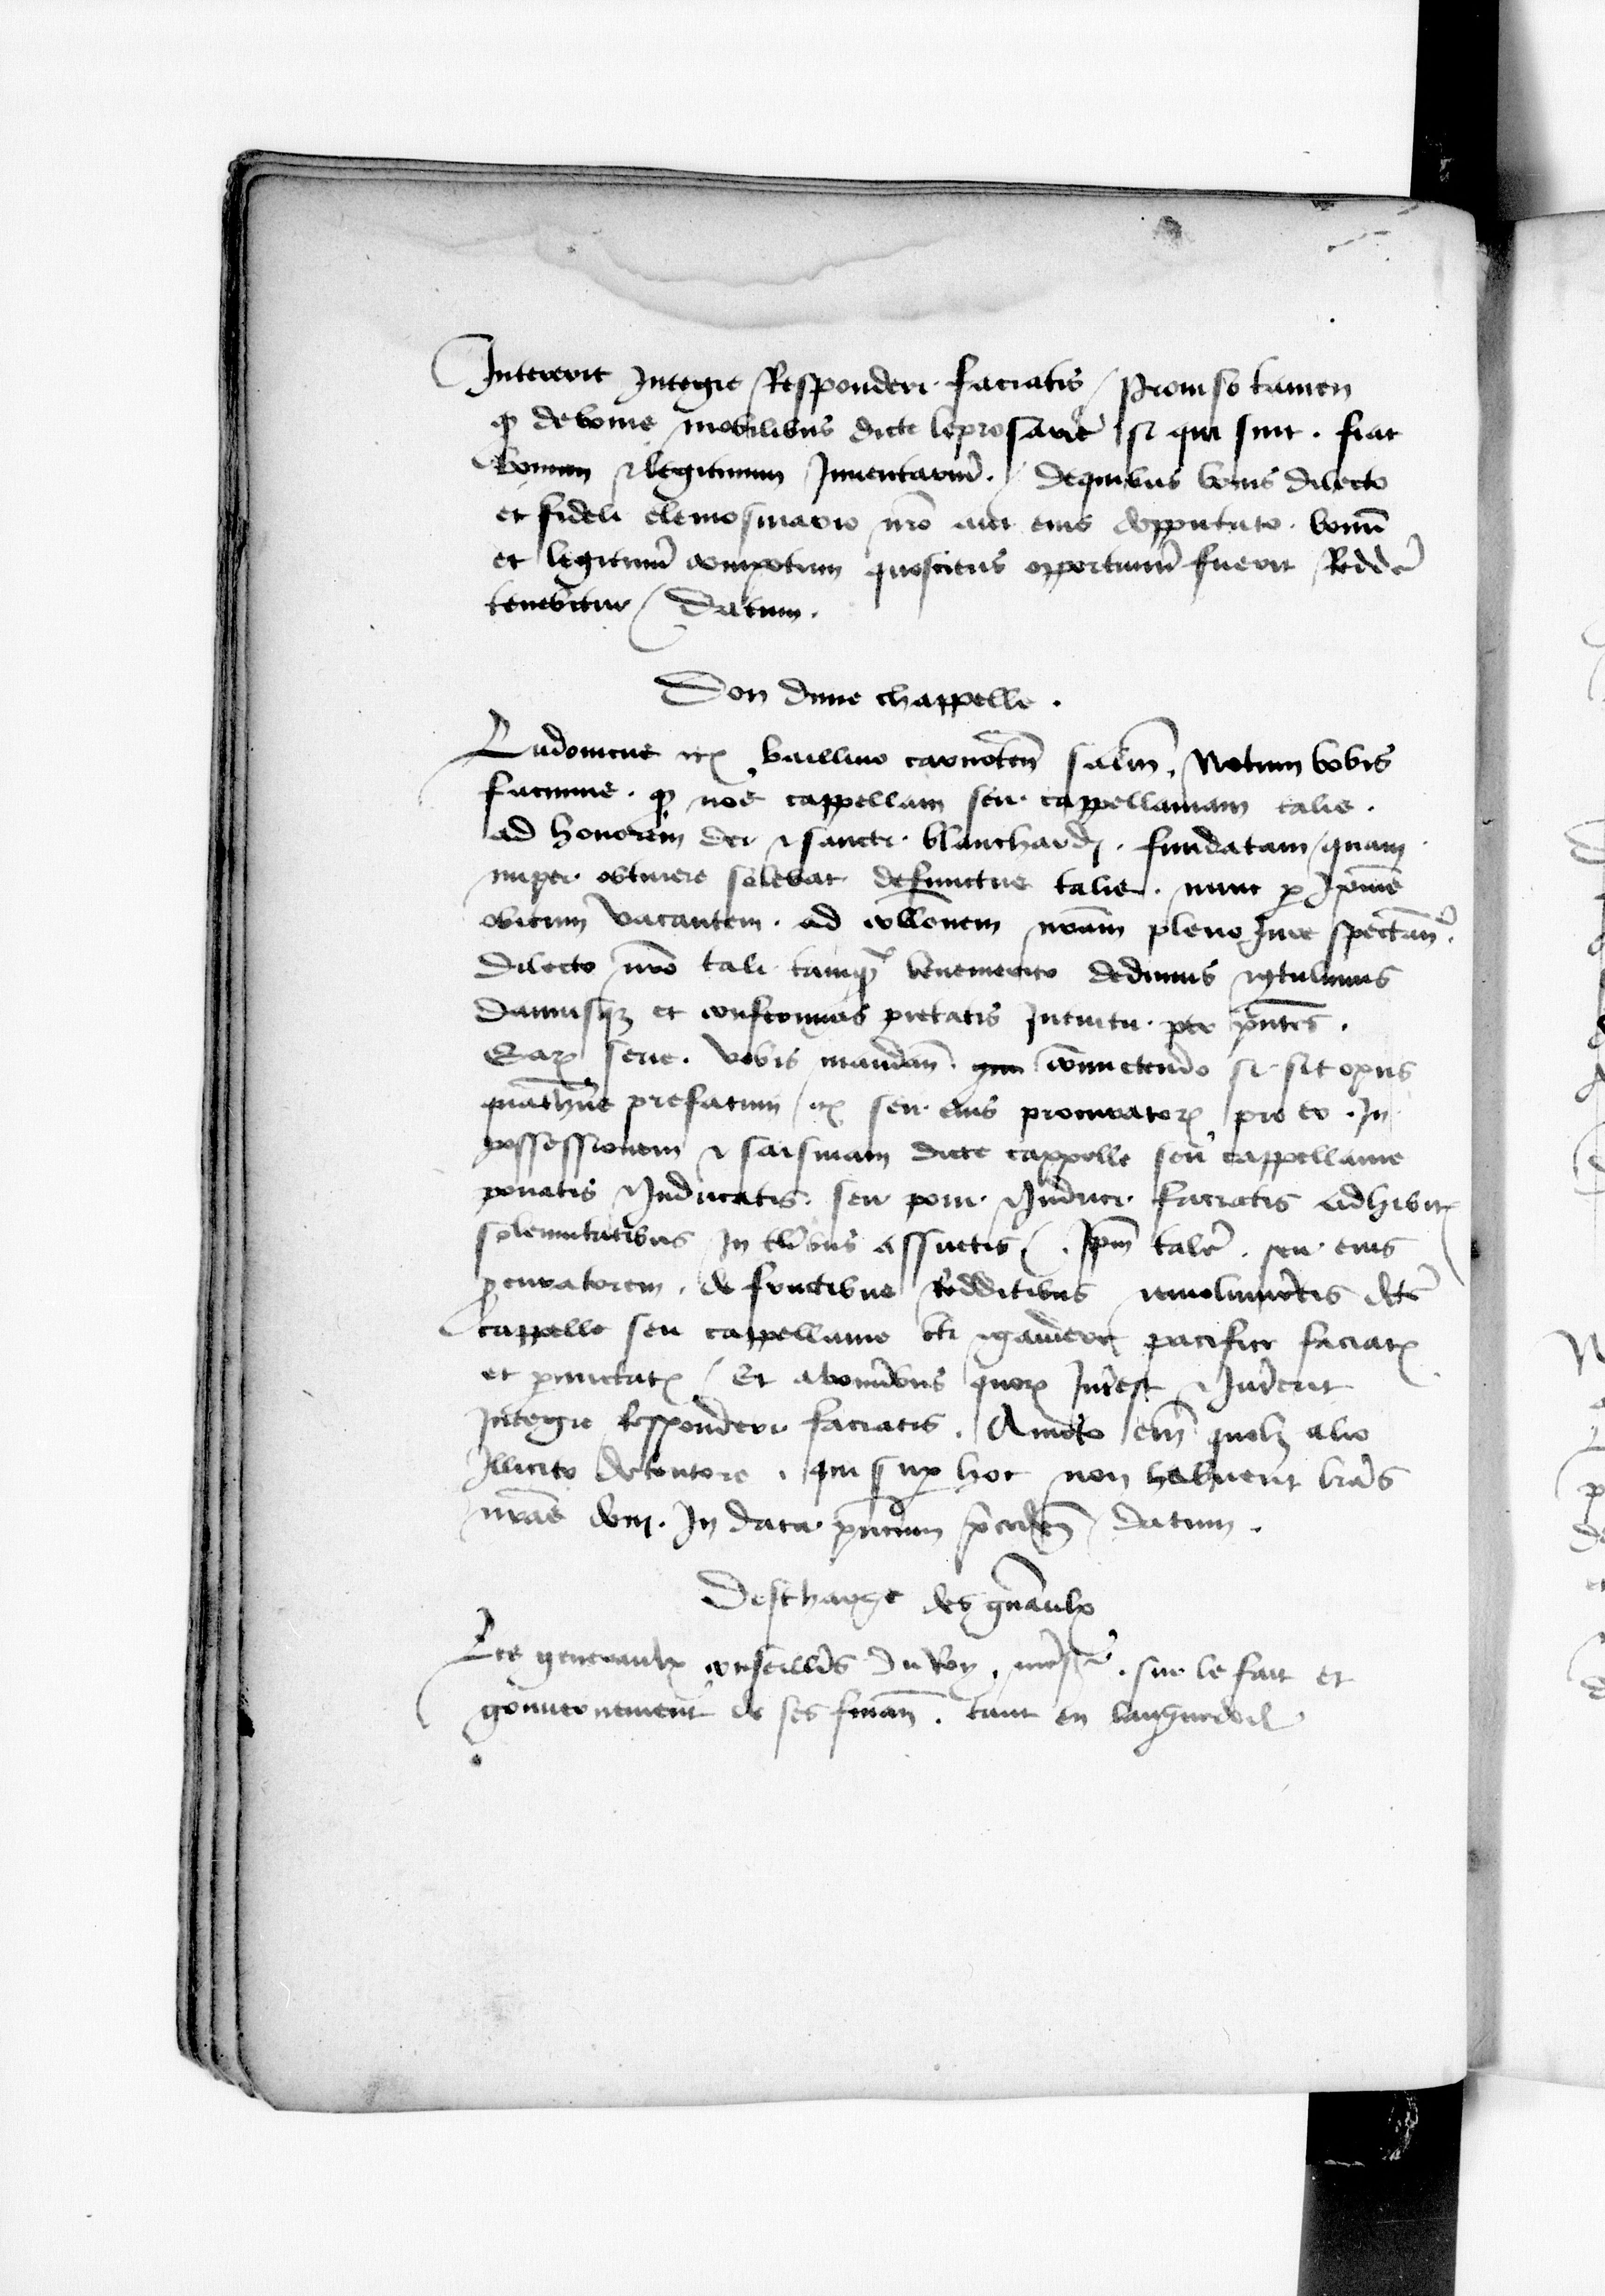 Intererit Integre Responderi faciatis / Proviso tamen
q̄ de bonis mobilibus dicte leprosarie si qui sint . fiat
bonum & legitimum Inventariū . / de quibus bonis dilecto
et fideli elemosinario nr̄o aut eius depputato . bonū
et legitimū compotum quociens opportunū fuerit Redder̄
tenebitur / Datum .
Don dune chappelle .
Ludovicus etc̄ baillivo carnoteñ salm̄ . Notum vobis
facimus . q̄ nos cappellam seu cappellaniam talis .
ad honorem dei & sancti blanchardi . fundatam / quam
nuper obtinere solebat defunctus talis . nunc p ip̄ius
obitum vacantem . ad coll̄onem nr̄am pleno Iure spectañ .
dilecto nr̄o tali tamq̄ benemerito dedimus & contulimus
damusq₃ et conferimus pietatis Intuitu . per p̄ntes .
Eaꝝ serie . vobis mandañ . com̄ictendo si sit opus
quathin̄s prefatum etc̄ seu eius procuratorē pro eo . In
possessionem & saisinam dicte cappelle seu cappellanie
ponatis & Inducatis . seu poni & Induci faciatis adhibitꝭ
solennitatibus In talibus assuetis / . Ip̄m talē . seu eius
p̄curatorem . de fructibus Redditibus & emolumentis dc̄e
cappelle seu cappellanie uti & gaudere pacifice faciatꝭ
et p̄mictatꝭ / Et ab omībus quoꝝ Int̄est & Int̄erit
Integre Responderi faciatis . Amoto exin̄ quol₃ alio
Illicito detentore . qui sup hoc non habuerit lr̄as
nr̄as In data p̄ntium p̄cedeñ / datum .
Descharge des gn̄aulx
Les generaulx conseillr̄s du Roy . nr̄e sr̄ . sur le fait et
gouvernement de ses finañ . tant en languedoil